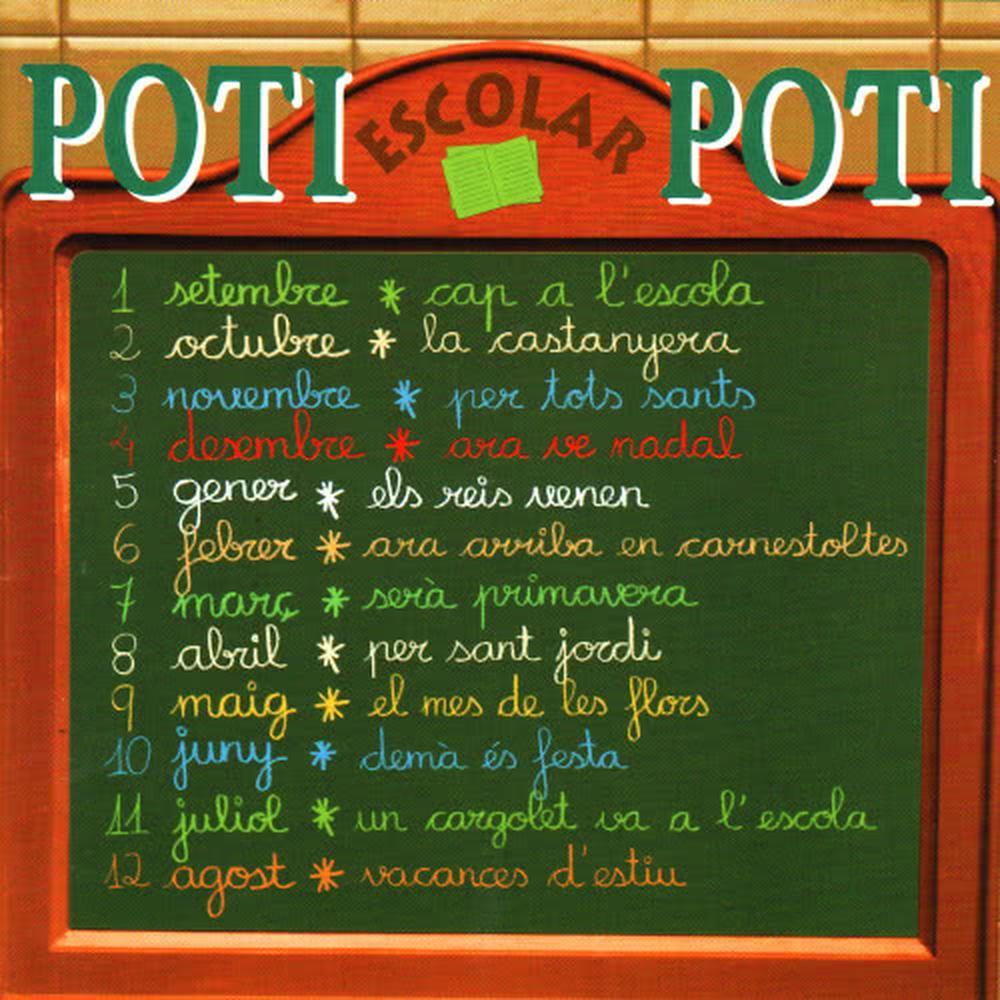 POTI ESCOLAR POTI
1 setembre * cap a l'escola
2 octubre * la castanyera
3 novembre * per tots sants
4 desembre * ara ve nadal
5 gener * els reis venen
6 febrer * ara arriba en carnestoltes
7 març * serà primavera
8 abril * per sant jordi
9 maig * el mes de les flors
10 juny * demà és festa
11 juliol * un cargolet va a l'escola
12 agost * vacances d'estiu